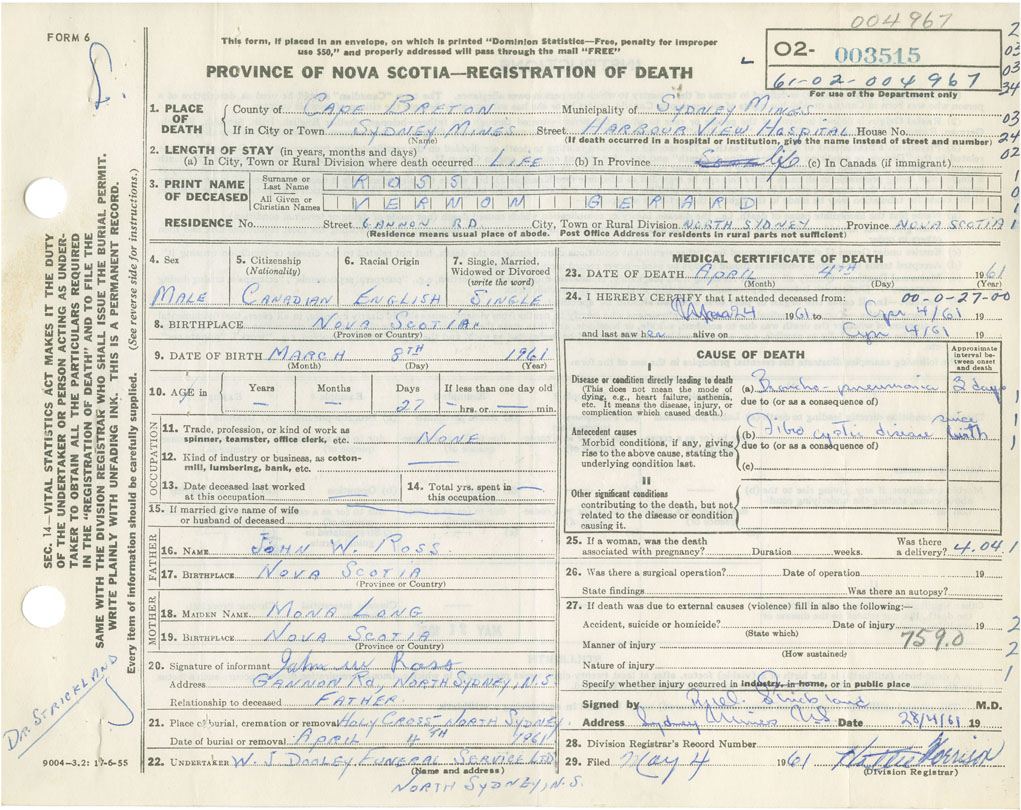 004967
FORM 6
This form, if placed in an envelope, on which is printed "Dominion Statistics—Free, penalty for improper
use $50," and properly addressed will pass through the mail "FREE"
02- 003515
61-02-004967
For use of the Department only
PROVINCE OF NOVA SCOTIA—REGISTRATION OF DEATH
1. PLACE OF DEATH
County of CAPE BRETON Municipality of SYDNEY MINES
If in City or Town SYDNEY MINES Street HARBOUR VIEW HOSPITAL House No.
(Name) (If death occurred in a hospital or institution, give the name instead of street and number)
2. LENGTH OF STAY (in years, months and days)
(a) In City, Town or Rural Division where death occurred LIFE (b) In Province life (c) In Canada (if immigrant)
3. PRINT NAME OF DECEASED
Surname or Last Name ROSS
All Given or Christian Names VERNON GERARD
RESIDENCE No. Street GANNON RD City, Town or Rural Division NORTH SYDNEY Province NOVA SCOTIA
(Residence means usual place of abode. Post Office Address for residents in rural parts not sufficient)
4. Sex MALE
5. Citizenship (Nationality) CANADIAN
6. Racial Origin ENGLISH
7. Single, Married, Widowed or Divorced (write the word) SINGLE
8. BIRTHPLACE NOVA SCOTIA
(Province or Country)
9. DATE OF BIRTH MARCH 8TH 1961
(Month) (Day) (Year)
10. AGE in Years — Months — Days 27 If less than one day old hrs. or — min.
OCCUPATION
11. Trade, profession, or kind of work as spinner, teamster, office clerk, etc. NONE
12. Kind of industry or business, as cotton-mill, lumbering, bank, etc. —
13. Date deceased last worked at this occupation —
14. Total yrs. spent in this occupation —
15. If married give name of wife or husband of deceased —
FATHER
16. NAME JOHN W. ROSS
17. BIRTHPLACE NOVA SCOTIA
(Province or Country)
MOTHER
18. MAIDEN NAME MONA LONG
19. BIRTHPLACE NOVA SCOTIA
(Province or Country)
20. Signature of informant John W Ross
Address GANNON RD, NORTH SYDNEY, N.S.
Relationship to deceased FATHER
21. Place of burial, cremation or removal HOLY CROSS NORTH SYDNEY
Date of burial or removal APRIL 4TH 1961
22. UNDERTAKER W. J DOOLEY FUNERAL SERVICE LTD
(Name and address)
NORTH SYDNEY, N.S.
MEDICAL CERTIFICATE OF DEATH
23. DATE OF DEATH APRIL 4TH 1961
(Month) (Day) (Year)
24. I HEREBY CERTIFY that I attended deceased from: 00-0-27-00
24 1961 to Apr 4/61 19
and last saw h alive on Apr 4/61 19
CAUSE OF DEATH
Approximate interval between onset and death
I
Disease or condition directly leading to death
(This does not mean the mode of dying, e.g., heart failure, asthenia, etc. It means the disease, injury, or complication which caused death.)
(a) Broncho pneumonia 3 days
due to (or as a consequence of)
Antecedent causes
Morbid conditions, if any, giving rise to the above cause, stating the underlying condition last.
(b) Fibro cystic disease since birth
due to (or as a consequence of)
(c)
II
Other significant conditions
contributing to the death, but not related to the disease or condition causing it.
25. If a woman, was the death associated with pregnancy? Duration weeks. Was there a delivery? 4.04
26. Was there a surgical operation? Date of operation 19
State findings Was there an autopsy?
27. If death was due to external causes (violence) fill in also the following:—
Accident, suicide or homicide? Date of injury 19
(State which)
759.0
Manner of injury
(How sustained)
Nature of injury
Specify whether injury occurred in industry, in home, or in public place
Signed by Strickland M.D.
Address Sydney Mines NS Date 28/4/61 19
28. Division Registrar's Record Number
29. Filed May 4 1961 Hattie Morrison
(Division Registrar)
SEC. 14—VITAL STATISTICS ACT MAKES IT THE DUTY
OF THE UNDERTAKER OR PERSON ACTING AS UNDER-
TAKER TO OBTAIN ALL THE PARTICULARS REQUIRED
IN THE "REGISTRATION OF DEATH" AND TO FILE THE
SAME WITH THE DIVISION REGISTRAR WHO SHALL ISSUE THE BURIAL PERMIT.
WRITE PLAINLY WITH UNFADING INK. THIS IS A PERMANENT RECORD.
Every item of information should be carefully supplied. (See reverse side for instructions.)
DR. STRICKLAND
9004—3.2: 17-6-55